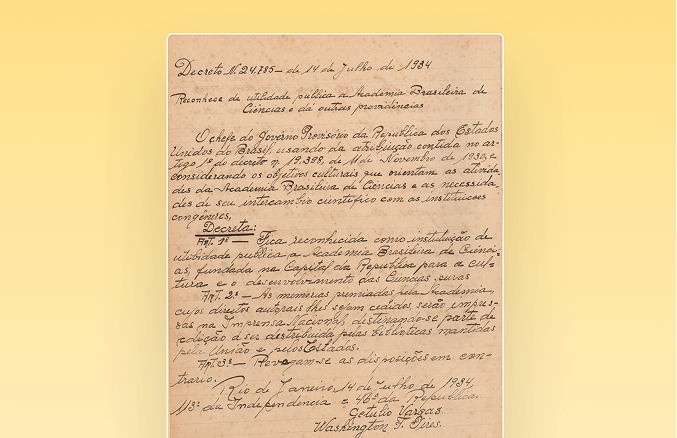 Decreto N. 24.785 – de 14 de Julho de 1934
Reconhece de utilidade pública a Academia Brasileira de
Ciências e dá outras providências
O chefe do Governo Provisório da Republica dos Estados
Unidos do Brasil, usando da atribuição contida no ar-
tigo 1º do decreto n. 19.398, de 11 de Novembro de 1930, e
considerando os objetivos culturais que orientam as ativida
des da Academia Brasileira de Ciências e as necessida
des de seu intercambio cientifico com as instituicoes
congêneres,
Decreta:
Art. 1º — Fica reconhecida como instituição de
utilidade publica a Academia Brasileira de Ciênci-
as, fundada na Capital da Republica para a cul-
tura e o desenvolvimento das Ciencias puras
Art. 2º – As memórias premiadas pela Academia,
cujos direitos autorais lhes sejam cedidos, serão impres-
sas na Imprensa Nacional, destinando-se parte da
edição a ser distribuida pelas bibliotecas mantidas
pela União e pelos Estados.
Art. 3º – Revogam-se as disposições em con-
trario.
Rio de Janeiro, 14 de Julho de 1934,
113º da Independencia e 46º da Republica.
Getulio Vargas.
Washington F. Pires.